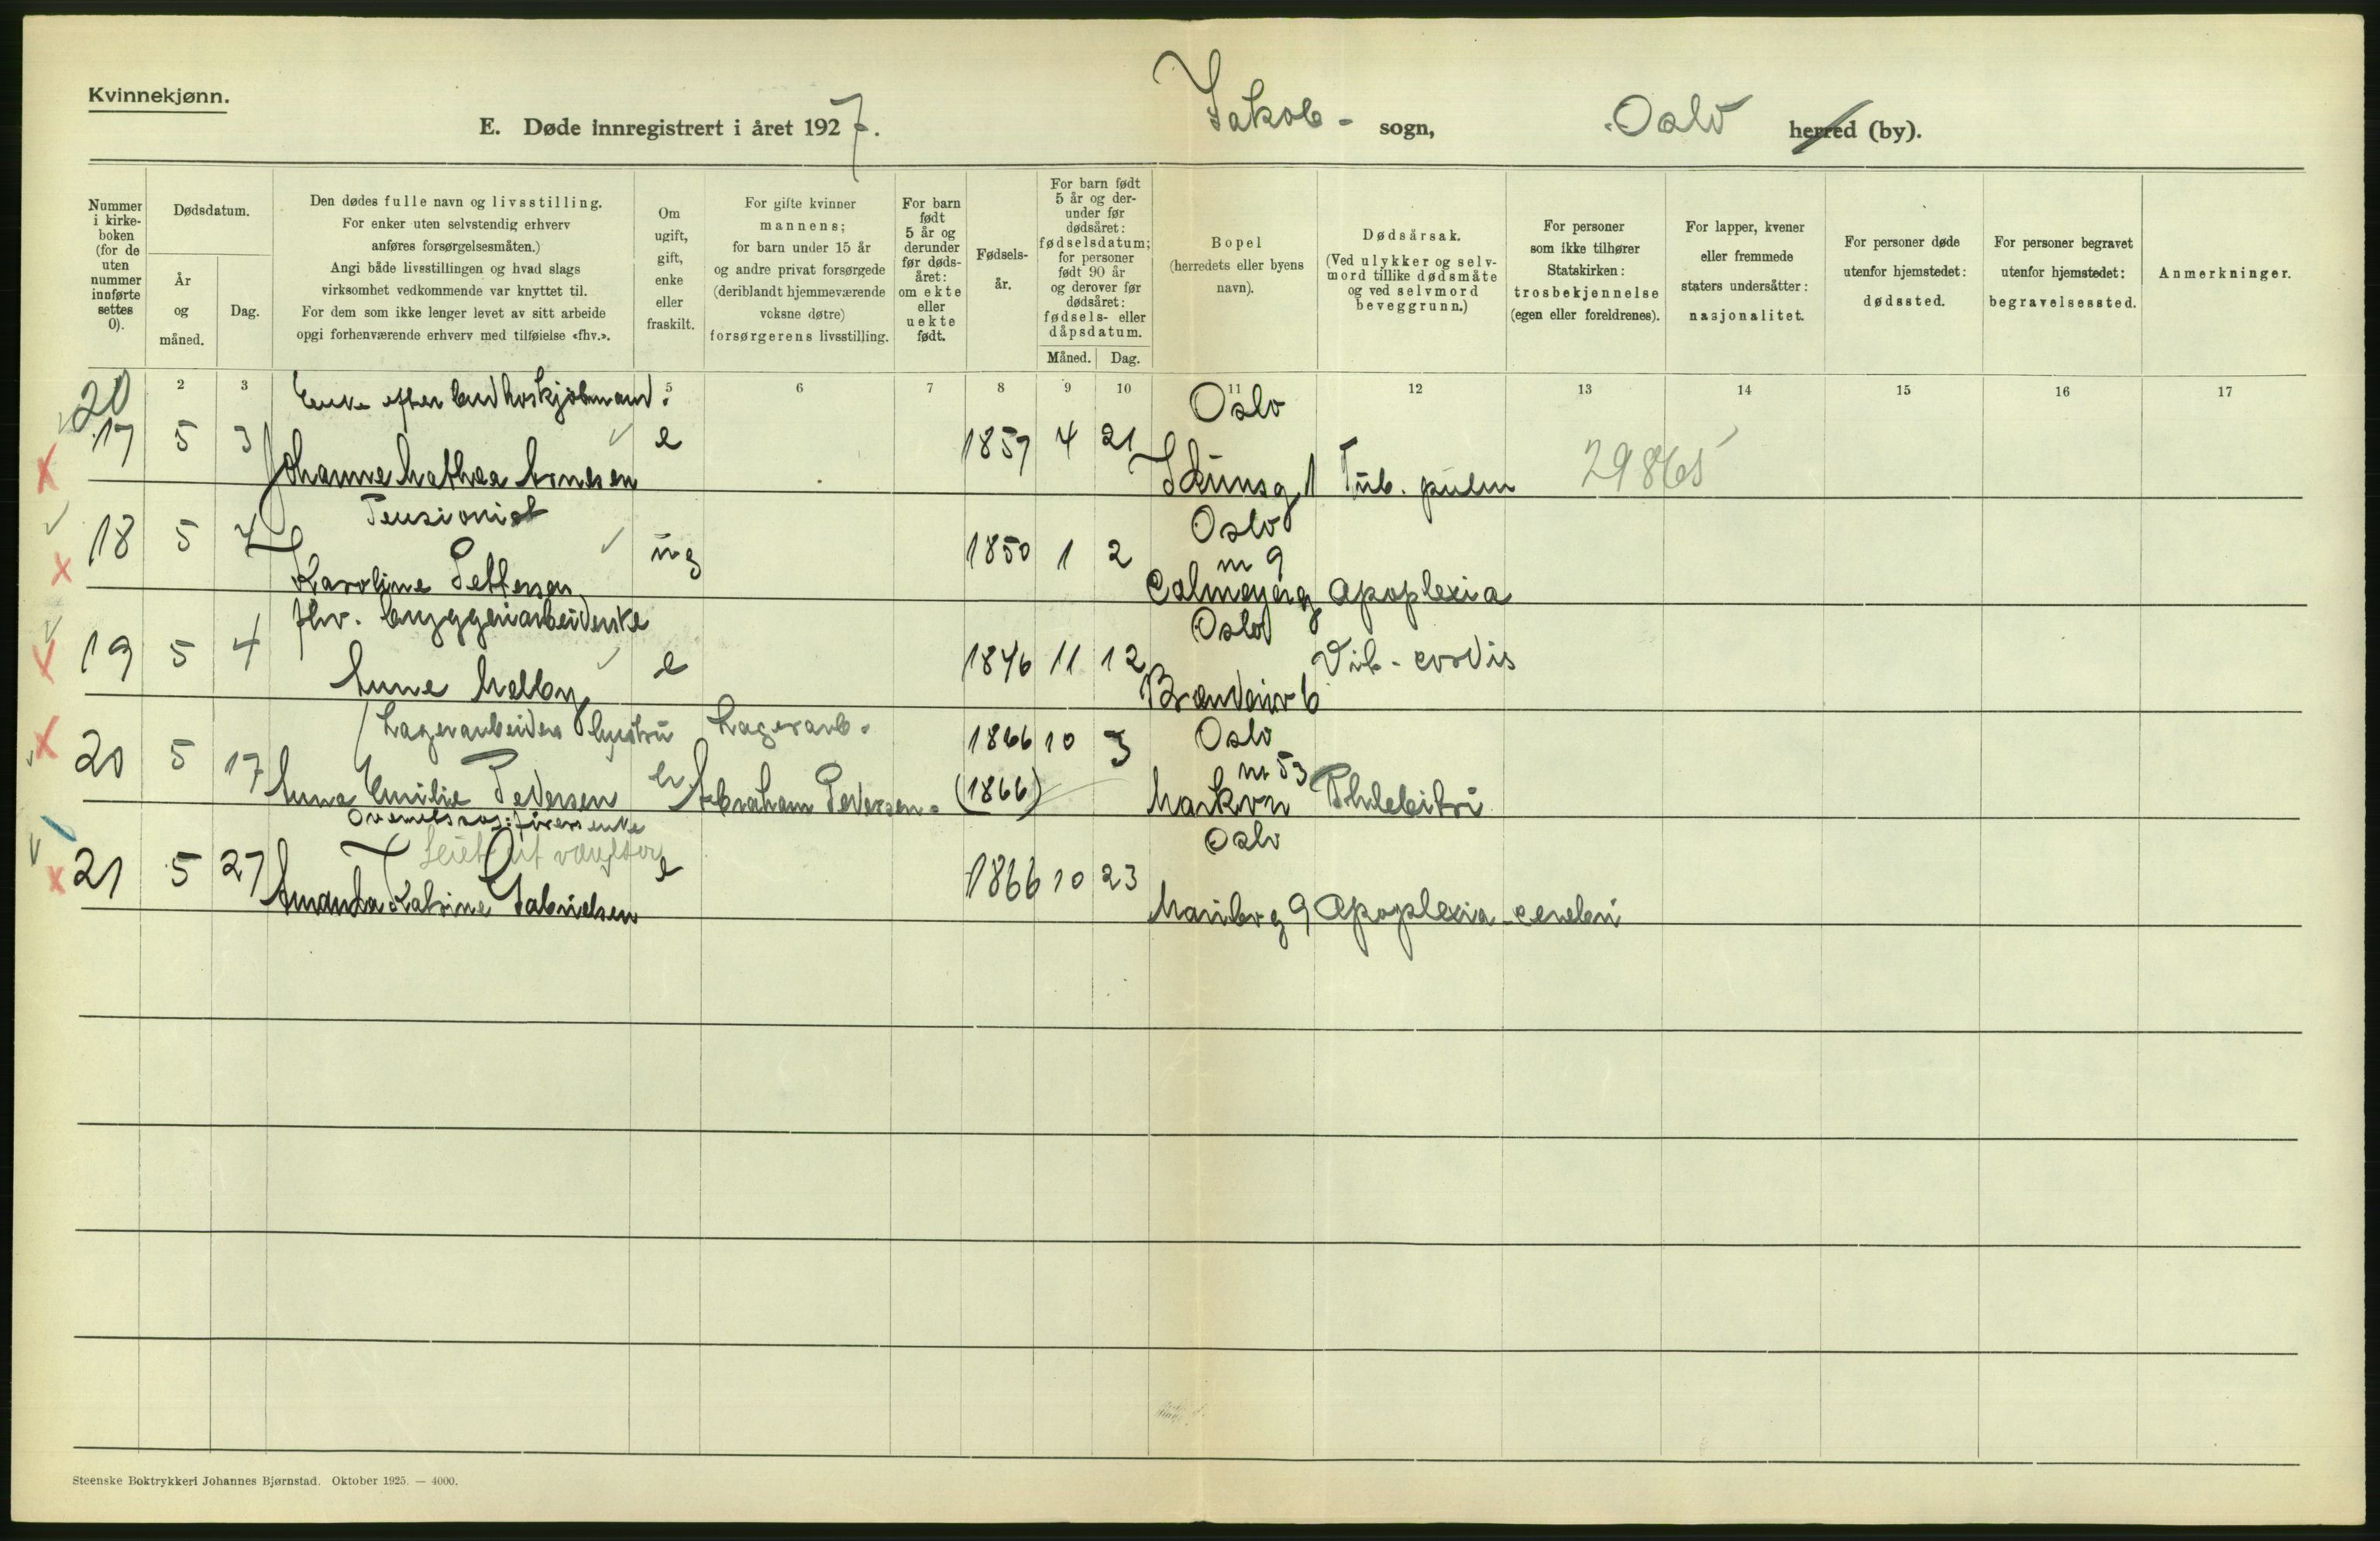 Kvinnekjønn.
E. Døde innregistrert i året 1927. Jakob - sogn, Oslo herred (by).
Nummer i kirke-boken (for de uten nummer innførte settes 0).
Dødsdatum.
År og måned.
Dag.
Den dødes fulle navn og livsstilling.
For enker uten selvstendig erhverv
anføres forsørgelsesmåten.)
Angi både livsstillingen og hvad slags
virksomhet vedkommende var knyttet til.
For dem som ikke lenger levet av sitt arbeide
opgi forhenværende erhverv med tilføielse «fhv.».
Om
ugift,
gift,
enke
eller
fraskilt.
For gifte kvinner
mannens;
for barn under 15 år
og andre privat forsørgede
(deriblandt hjemmeværende
voksne døtre)
forsørgerens livsstilling.
For barn
født
5 år og
derunder
før døds-
året:
om ekte
eller
uekte
født.
Fødsels-
år.
For barn født
5 år og der-
under før
dødsåret:
fødselsdatum;
for personer
født 90 år
og derover før
dødsåret:
fødsels- eller
dåpsdatum.
Måned. Dag.
Bopel
(herredets eller byens
navn).
Dødsårsak.
(Ved ulykker og selv-
mord tillike dødsmåte
og ved selvmord
beveggrunn.)
For personer
som ikke tilhører
Statskirken:
trosbekjennelse
(egen eller foreldrenes).
For lapper, kvener
eller fremmede
staters undersåtter:
nasjonalitet.
For personer døde
utenfor hjemstedet:
dødssted.
For personer begravet
utenfor hjemstedet:
begravelsessted.
Anmerkninger.
20 2 3 5 6 7 8 9 10 11 12 13 14 15 16 17
Enke efter Oslo
17 5 3 Johanne Mathea Arnesen e 1859 4 21 g 1 Tub. pulm 29865
Pensionist Oslo
18 5 7 Karoline Pettersen ug 1850 1 2 nr 9 Calmeyerg Apoplexia
fhv. bryggeriarbeiderske Oslo
19 5 4 Anne Melby e 1846 11 12 6 Vit. cordis
Lagerarbeiders hustru Lagerarb. 1866 10 3 Oslo
20 5 17 Anna Emilie Pedersen Abraham Pedersen. (1866) nr 53 Markvn
enke Oslo
21 5 27 Amanda Katrine Gabrielsen e 1866 10 23 Maribog 9 Apoplexia cerebri
Steenske Boktrykkeri Johannes Bjørnstad. Oktober 1925. — 4000.